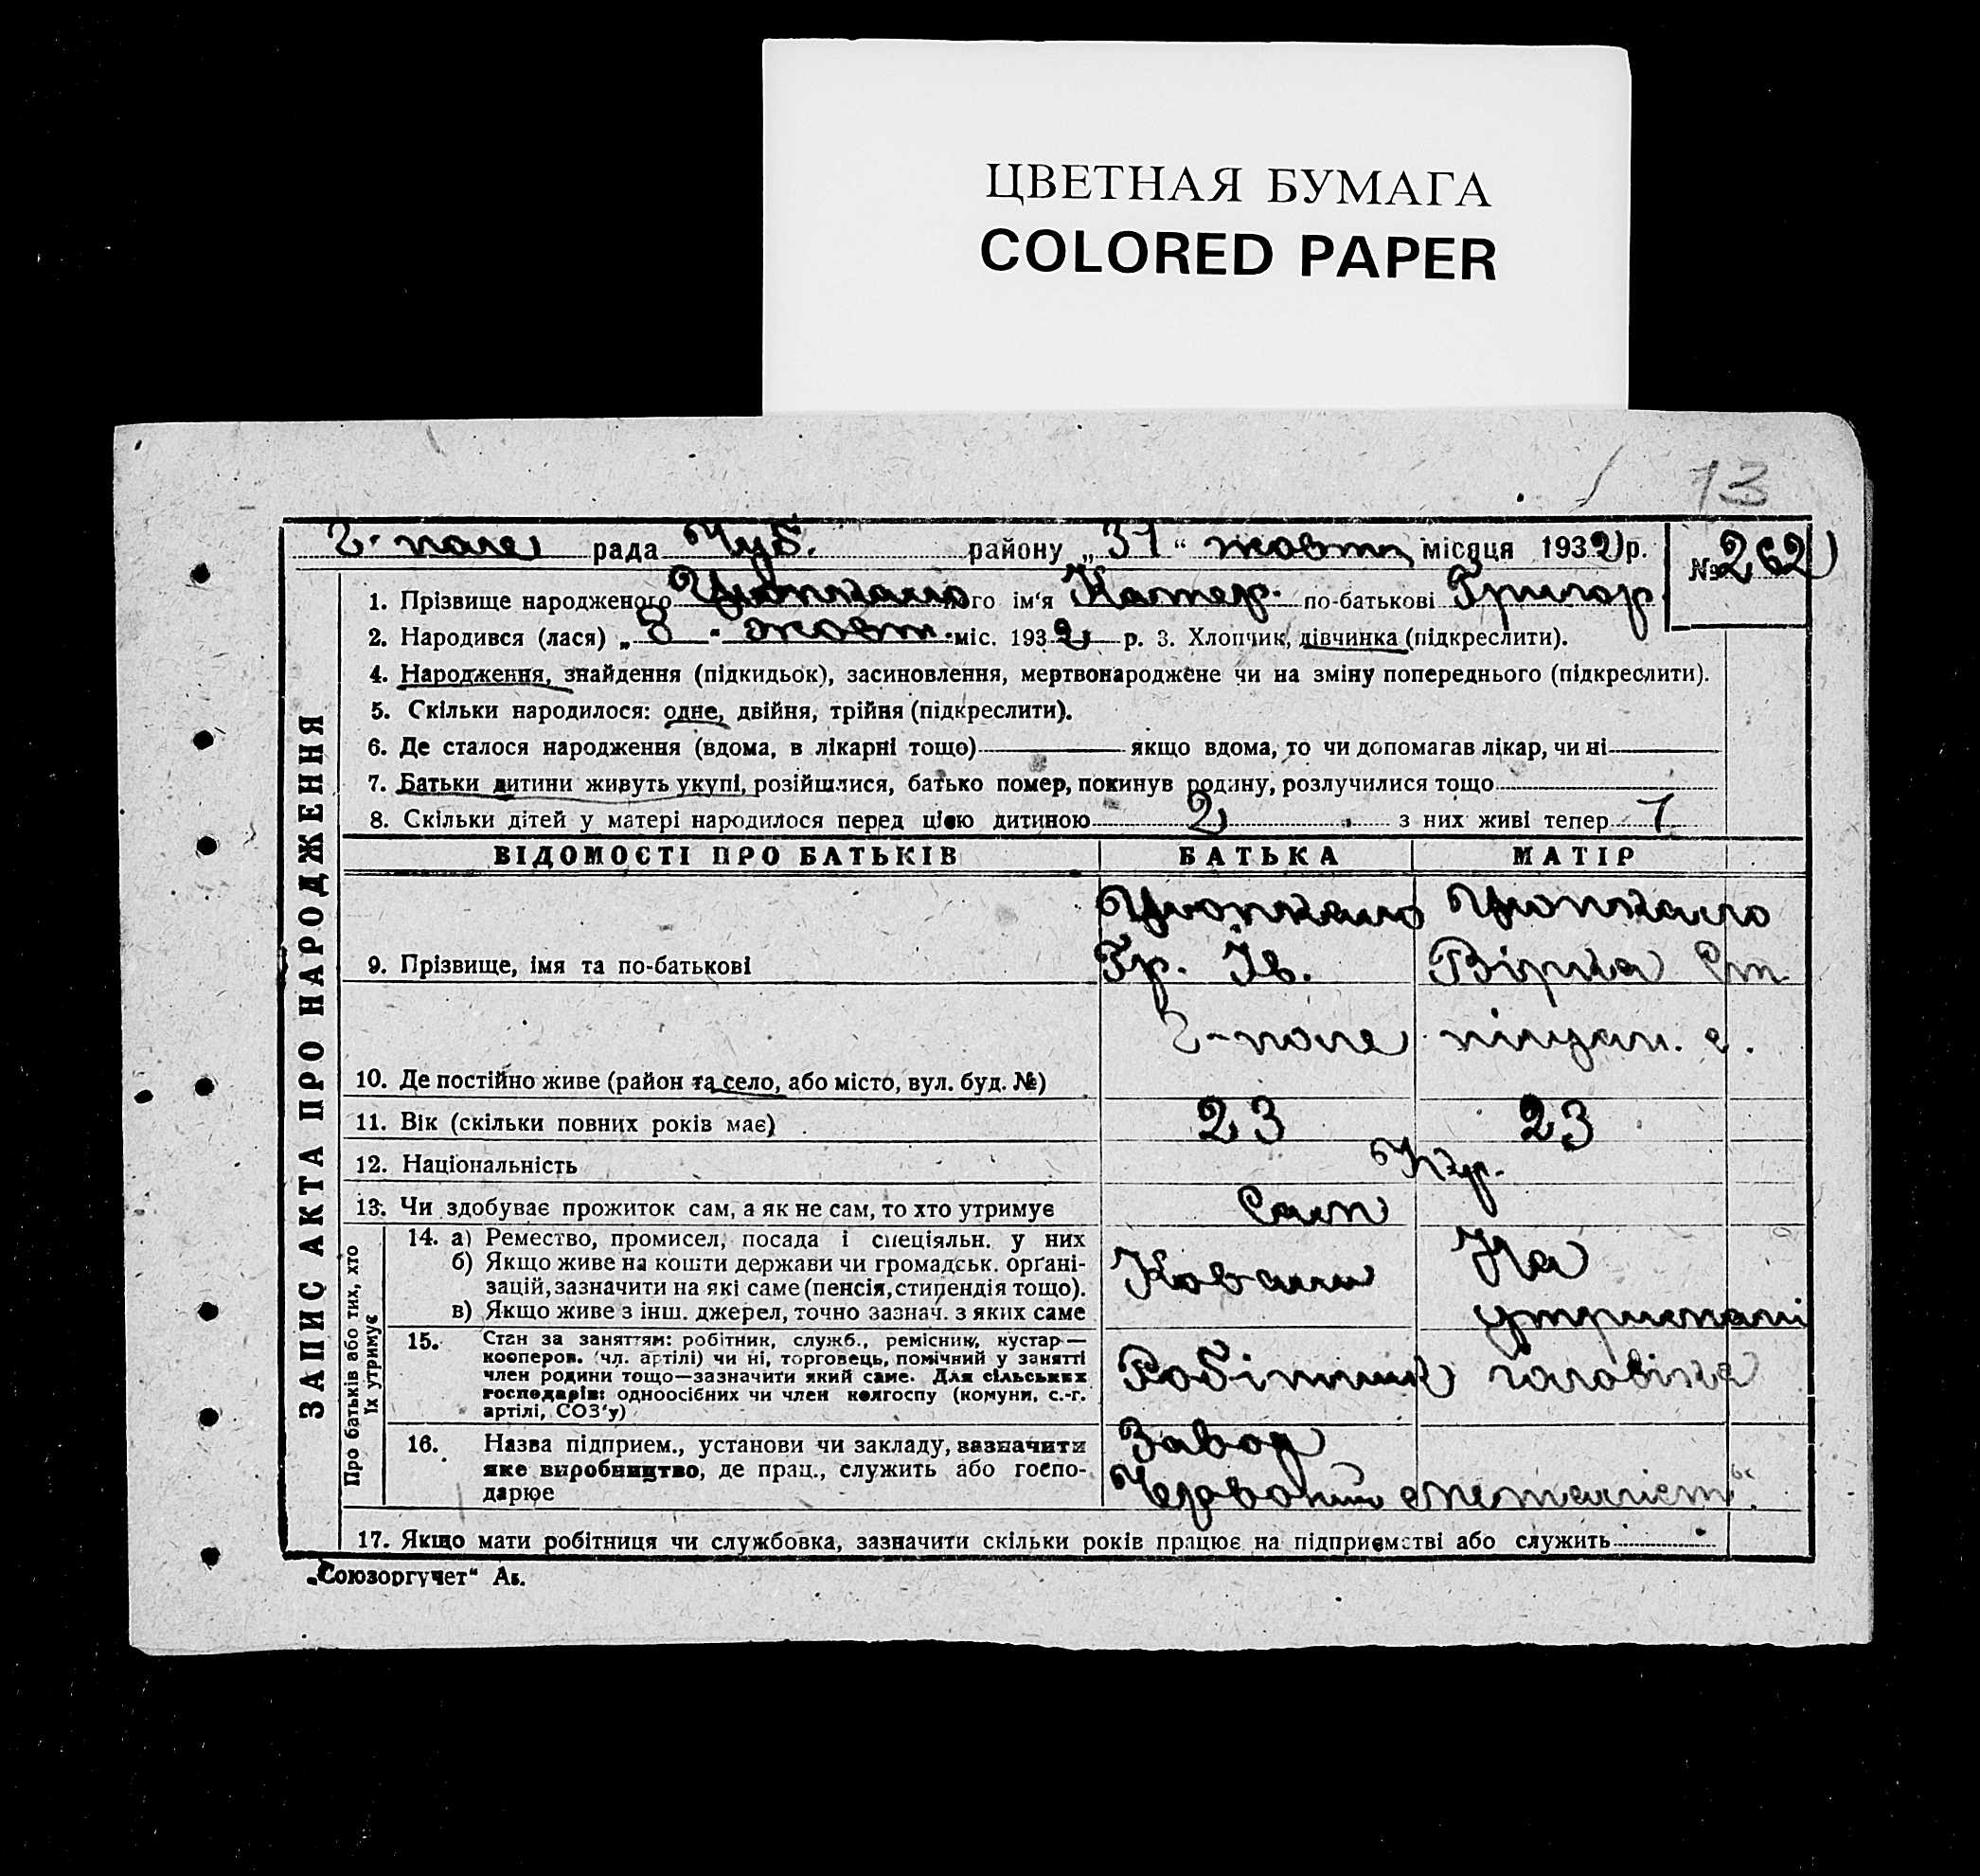 ЦВЕТНАЯ БУМАГА
COLORED PAPER
13
рада Чуб. району „31“ жовтн місяця 1932 р. № 262
ЗАПИС АКТА ПРО НАРОДЖЕННЯ
1. Прізвище народженого його ім'я Катер. по-батькові Григор.
2. Народився (лася) „8“ жовт. міс. 1932 р. 3. Хлопчик, дівчинка (підкреслити).
4. Народження, знайдення (підкидьок), засиновлення, мертвонароджене чи на зміну попереднього (підкреслити).
5. Скільки народилося: одне, двійня, трійня (підкреслити).
6. Де сталося народження (вдома, в лікарні тощо) якщо вдома, то чи допомагав лікар, чи ні
7. Батьки дитини живуть укупі, розійшлися, батько помер, покинув родину, розлучилися тощо
8. Скільки дітей у матері народилося перед цією дитиною 2 з них живі тепер 1
ВІДОМОСТІ ПРО БАТЬКІВ БАТЬКА МАТІР
9. Прізвище, імя та по-батькові Гр. Ів. Вірка Ст.
10. Де постійно живе (район та село, або місто, вул. буд. №)
11. Вік (скільки повних років має) 23 23
12. Національність Укр.
13. Чи здобуває прожиток сам, а як не сам, то хто утримує Сам
Про батьків або тих, хто їх утримує
14. а) Ремество, промисел, посада і специяльн. у них Коваль На утримані
б) Якщо живе на кошти держави чи громадськ. органі-
зацій, зазначити на які саме (пенсія, стипендія тощо).
в) Якщо живе з інш. джерел, точно зазнач. з яких саме
15. Стан за заняттям: робітник, служб., ремісник, кустар—
кооперов. (чл. артілі) чи ні, торговець, помічний у занятті
член родини тощо—зазначити який саме. Для сільських
господарів: одноосібних чи член колгоспу (комуни, с.-г.
артілі, СОЗ'у) Робітник чоловіка
16. Назва підприєм., установи чи закладу, зазначити
яке виробництво, де прац., служить або госпо-
дарює Завод
Червоний металіст.
17. Якщо мати робітниця чи службовка, зазначити скільки років працює на підприємстві або служить
„Союзоргучет“ Аб.